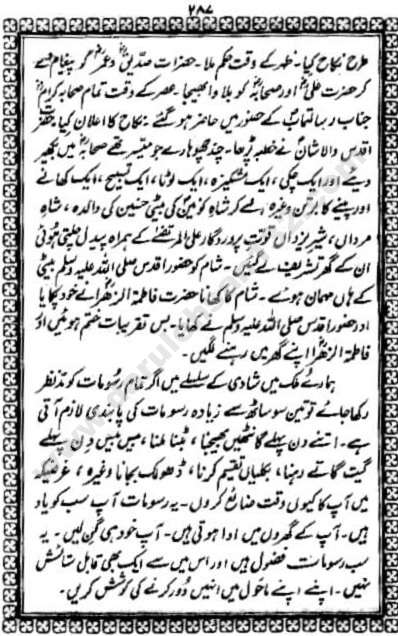 ۲۸۷
طرح نکاح کیا۔ ظہر کے وقت حکم ملا۔ حضرات صدیقؓ و عمرؓ کو پیغام دے
کر حضرت علیؓ اور صحابہؓ کو بلا وا بھیجا۔ عصر کے وقت تمام صحابہ کرامؓ
جناب رسالتمآبؐ کے حضور میں حاضر ہو گئے۔ نکاح کا اعلان کیا۔ حضور
اقدس والا شانؐ نے خطبہ پڑھا۔ چند چھوہارے جو میسر تھے صحابہؓ میں بکھیر
دیئے اور ایک چکی، ایک مشکیزہ، ایک لوٹا، ایک تسبیح، ایک کھانے
اور پینے کا برتن وغیرہ لے کر شاہِ کونینؐ کی بیٹی حسنین کی والدہ، شاہِ
مرداں، شیرِ یزداں قوتِ پروردگار علی المرتضےٰؓ کے ہمراہ پیدل چلتی ہوئی
ان کے گھر تشریف لے گئیں۔ شام کو حضورِ اقدس صلی اللہ علیہ وسلم بیٹی
کے ہاں مہمان ہوئے۔ شام کا کھانا حضرت فاطمۃ الزہراؓ نے خود پکایا
اور حضورِ اقدس صلی اللہ علیہ وسلم نے کھایا۔ بس تقریبات ختم ہوئیں اور
فاطمۃ الزہراؓ اپنے گھر میں رہنے لگیں۔
ہمارے ملک میں شادی کے سلسلے میں اگر تمام رسُومات کو مدّنظر
رکھا جائے تو تین سو ساٹھ سے زیادہ رسومات کی پابندی لازم آتی
ہے۔ اتنے دن پہلے گانٹھیں بھیجنا، بٹنا ملنا، بیس بیس دن پہلے
گیت گاتے رہنا، بکلیاں تقیم کرنا، ڈھولک بجانا وغیرہ، غرضیکہ
میں آپ کا کیوں وقت ضائع کروں۔ یہ رسومات آپ سب کو یاد
ہیں۔ آپ کے گھروں میں ادا ہوتی ہیں۔ آپ خود ہی گن لیں۔ یہ
سب رسومات فضول ہیں اور اس میں سے ایک بھی قابل ستائش
نہیں۔ اپنے اپنے ماحول میں انہیں دُور کرنے کی کوشش کریں۔